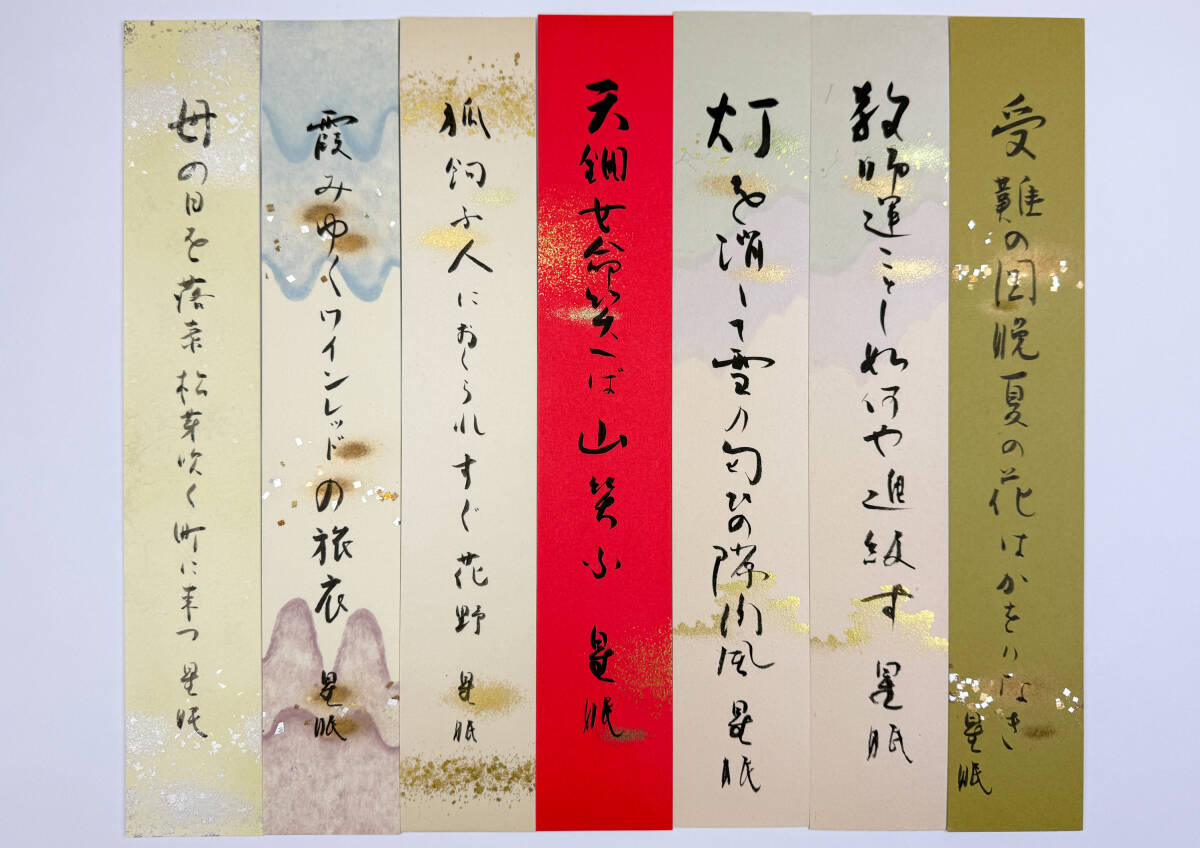 受難の図晩夏の花はかをりなき 星眠
教師運ことし如何や進級す 星眠
灯を消して雪の匂ひの隙間風 星眠
天鈿女命笑へば山笑ふ 星眠
狐飼ふ人におくられすぐ花野 星眠
霞みゆくワインレッドの旅衣 星眠
母の日を落葉松芽吹く町に来つ 星眠